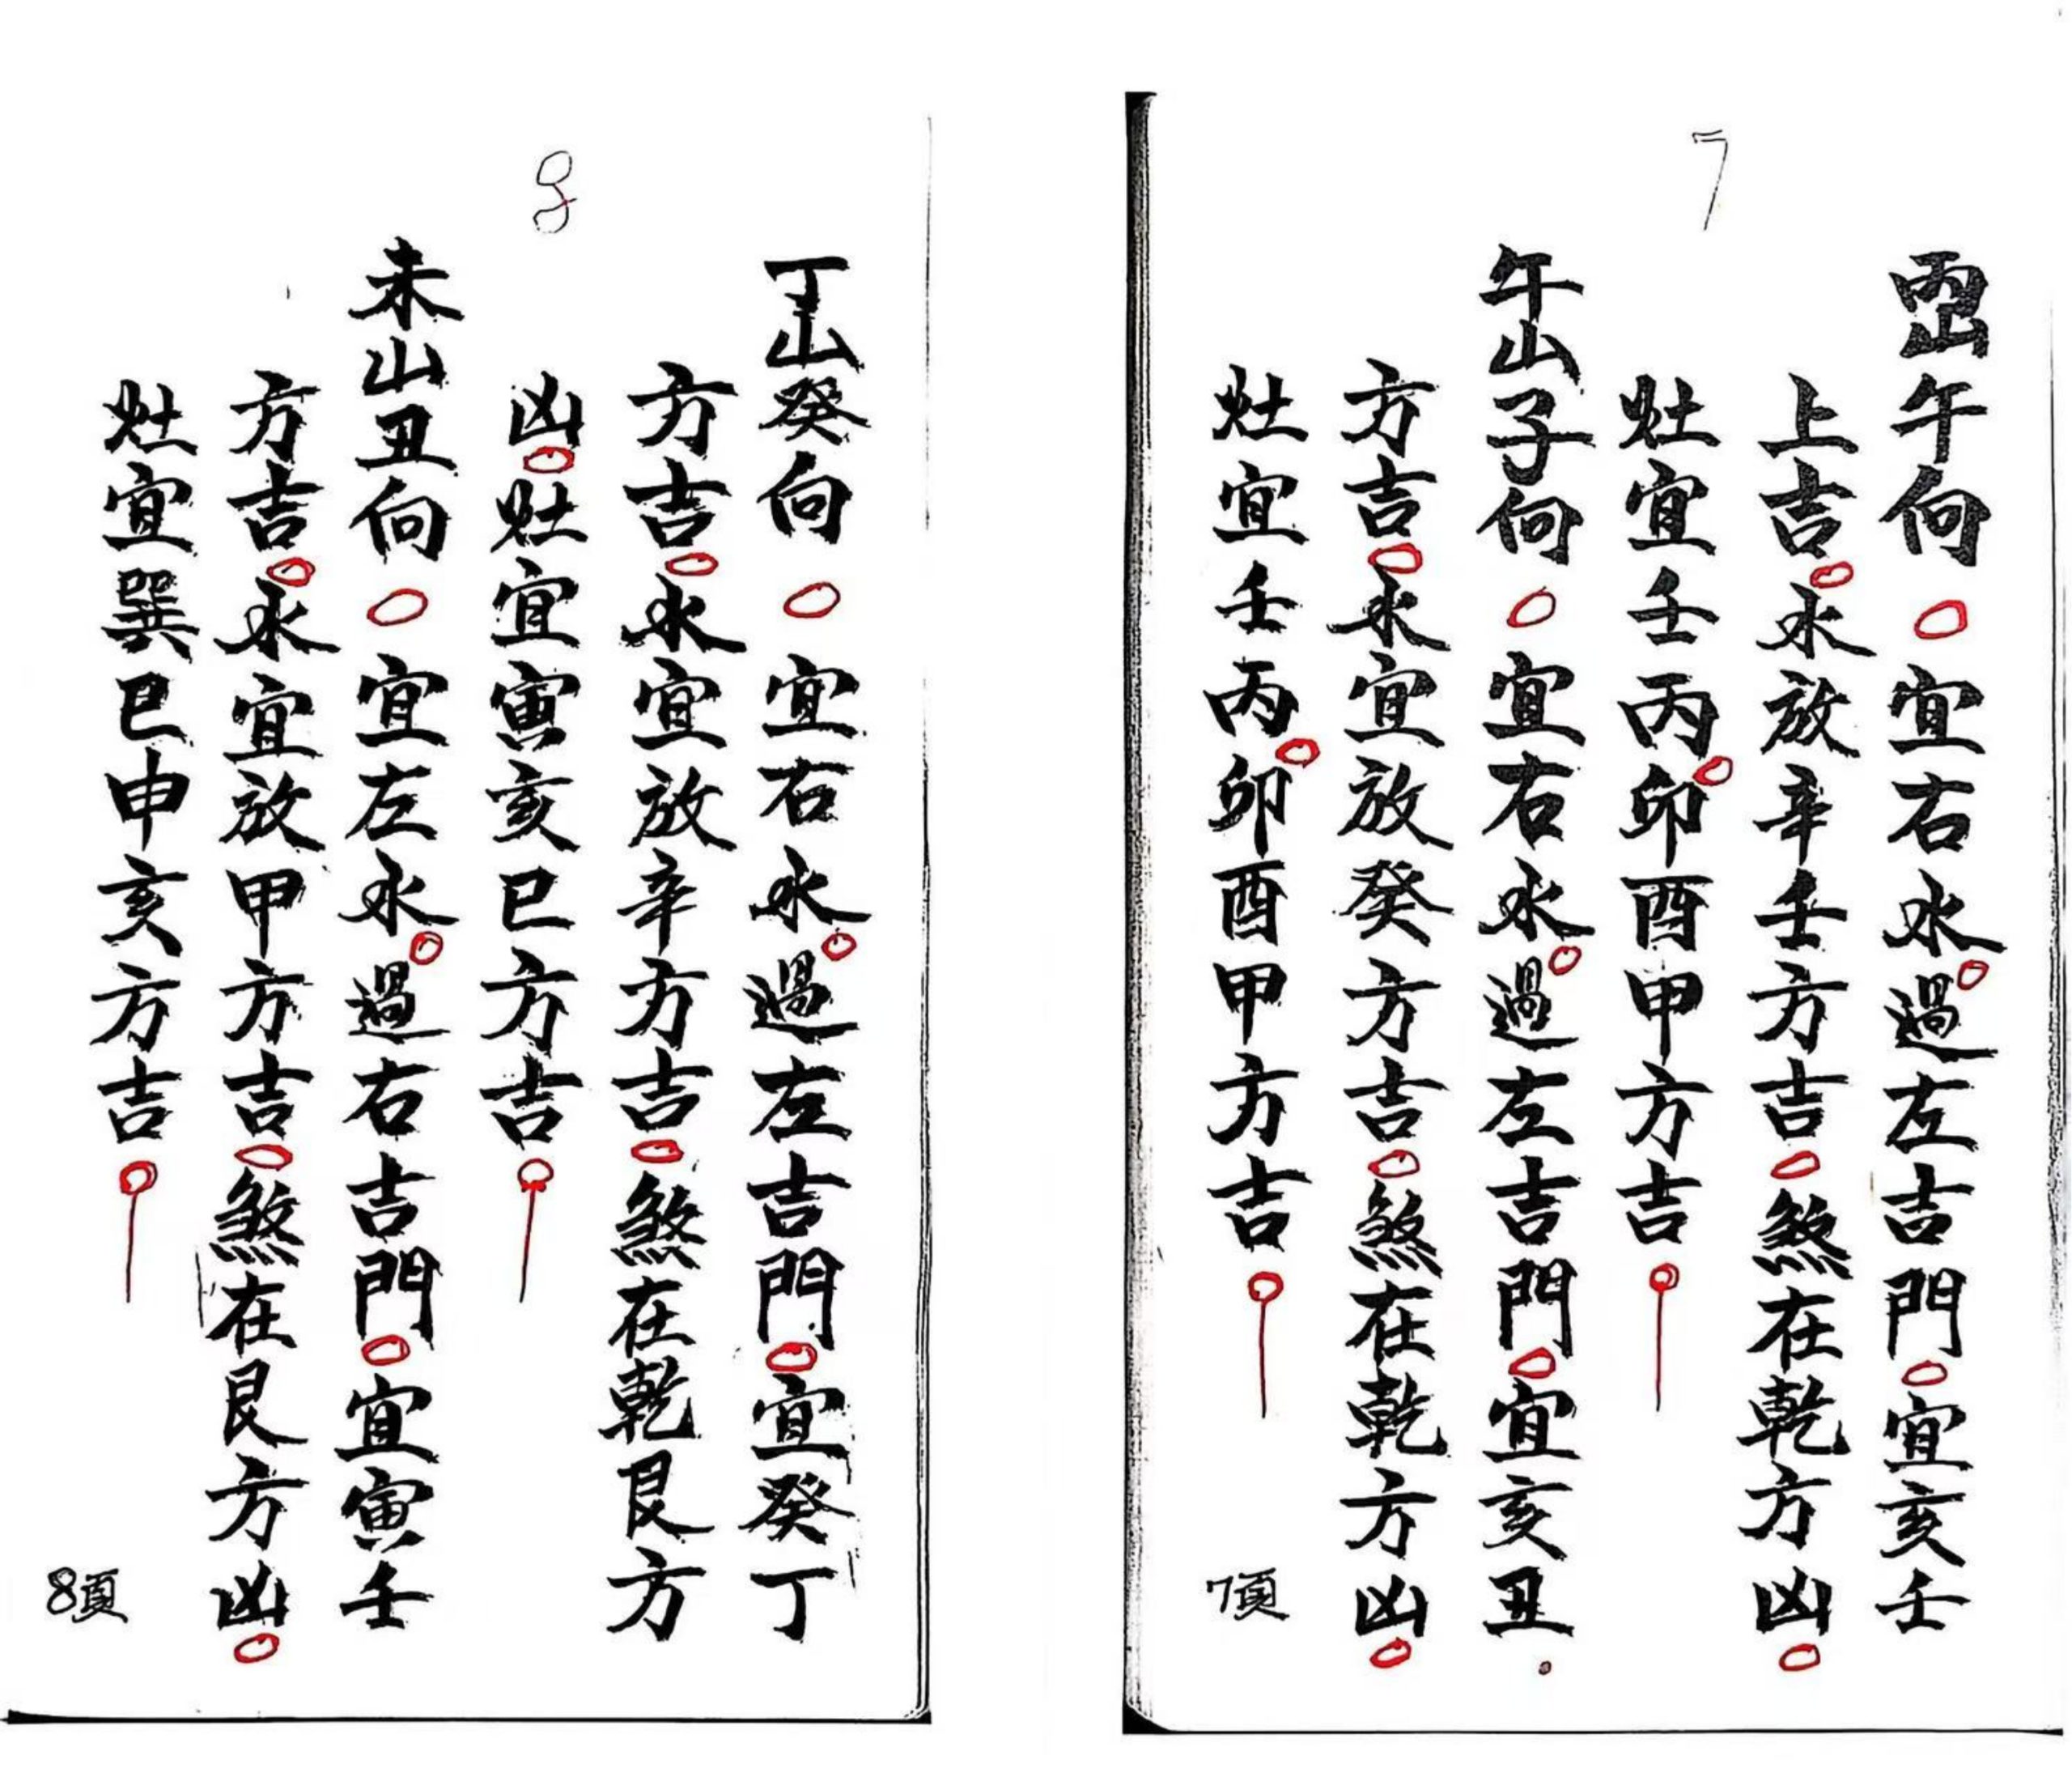 7
丙山午向○宜右水。過左吉門。宜亥壬
上吉。水放辛壬方吉。煞在乾方凶。
灶宜壬丙。卯酉甲方吉。
午山子向○宜右水。過左吉門。宜亥丑.
方吉。水宜放癸方吉。煞在乾方凶。
灶宜壬丙。卯酉甲方吉。
7頁
8
丁山癸向○宜右水。過左吉門。宜癸丁
方吉。水宜放辛方吉。煞在乾艮方
凶。灶宜寅亥巳方吉。
未山丑向○宜左水。過右吉門。宜寅壬
方吉。水宜放甲方吉。煞在艮方凶。
灶宜巽巳申亥方吉。
8頁